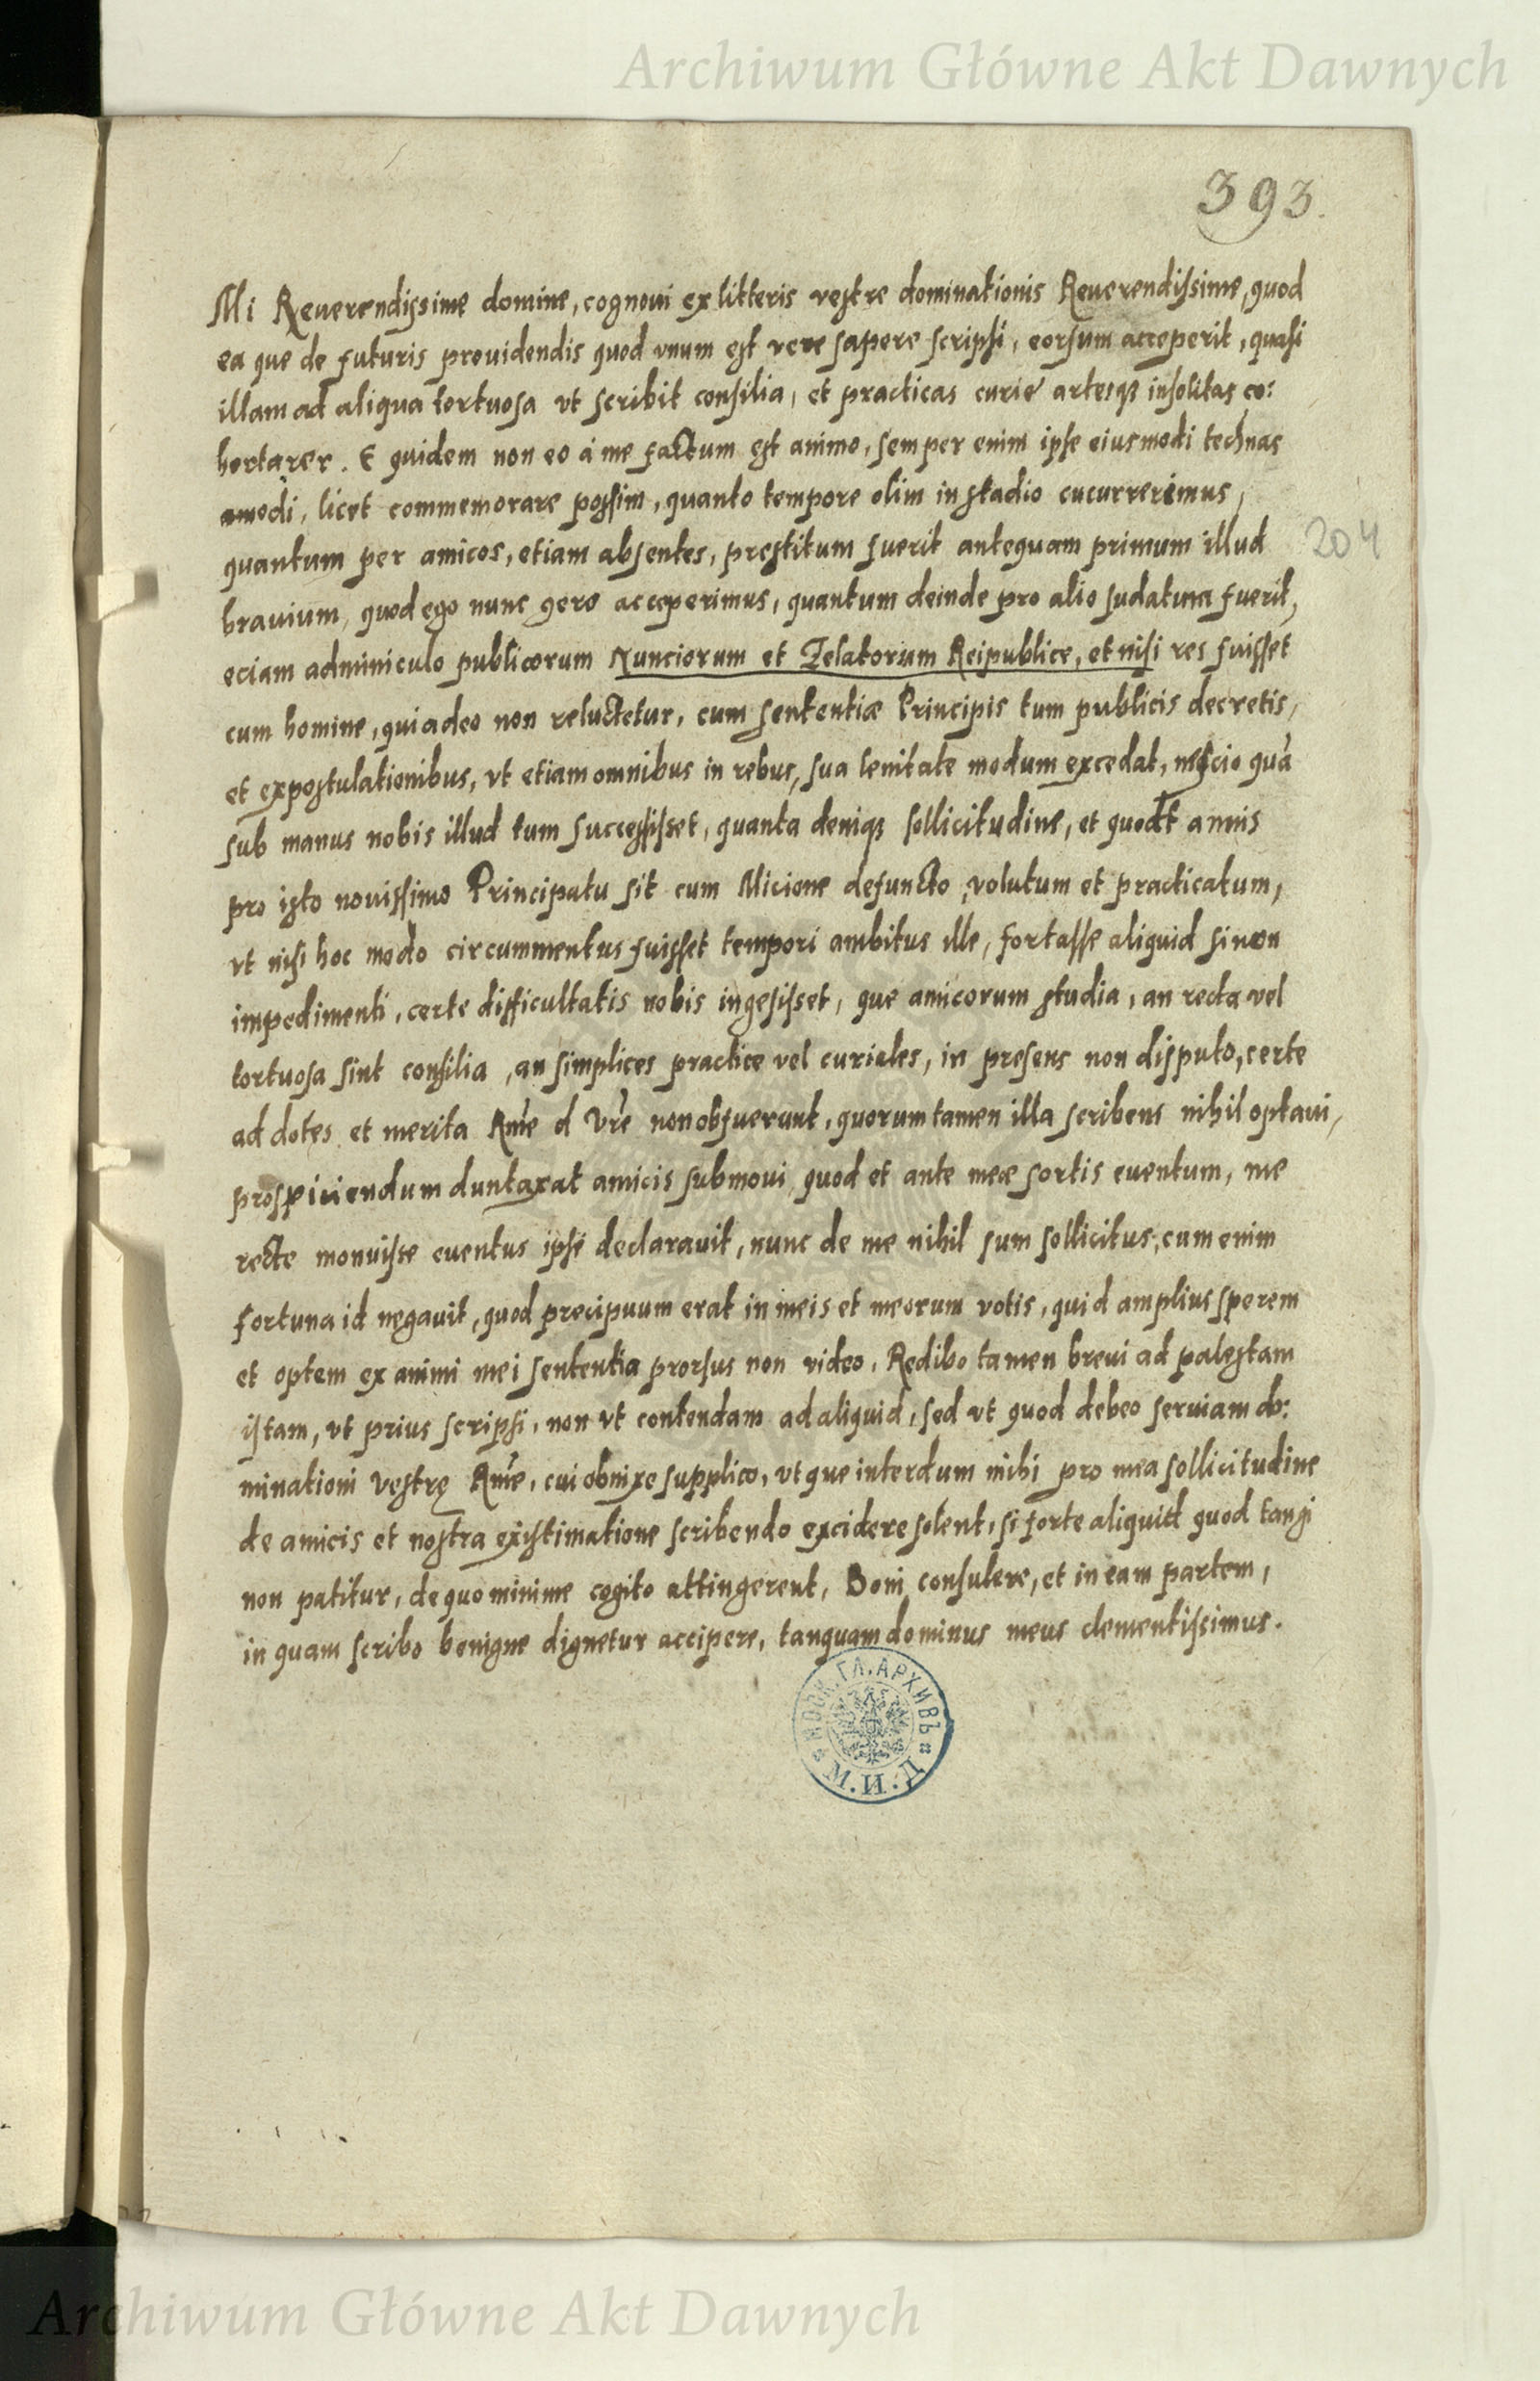 Archiwum Główne Akt Dawnych
393.
Mi Reuerendissime domine, cognoui ex litteris vestre dominationis Reuerendissime, quod
ea que de futuris prouidendis quod vnum est vere sapere scripsi, eorsum acceperit, quasi
illam ad aliqua tortuosa vt scribit consilia, et practicas curie artesqȝ insolitas co:
hortarer. E quidem non eo á me factum est animo, semper enim ipse eiusmodi technas
odi, licet commemorare possim, quanto tempore olim in stadio cucurrerimus,
quantum per amicos, etiam absentes, prestitum fuerit antequam primum illud
204
brauium, quod ego nunc gero acceperimus, quantum deinde pro alio sudatum fuerit,
eciam adminiculo publicorum Nunciorum et Zelatorum Reipublice, et nisi res fuisset
cum homine, qui adeo non reluctetur, cum sententiæ Principis tum publicis decretis,
et expostulationibus, vt etiam omnibus in rebus, sua lenitate modum excedat, nescio quà
sub manus nobis illud tum successisset, quanta deniqȝ sollicitudine, et quodt annis
pro isto nouissimo Principatu sit cum Micione defuncto, volutum et practicatum,
vt nisi hoc modo circummentus fuisset tempori ambitus ille, fortasse aliquid si non
impedimenti, certe difficultatis nobis ingesisset, que amicorum studia, an recta vel
tortuosa sint consilia, an simplices practice vel curiales, in presens non disputo, certe
ad dotes et merita Rme d Vre non obfuerunt, quorum tamen illa scribens nihil optaui,
prospiciendum duntaxat amicis submoui, quod et ante meæ sortis euentum, me
recte monuisse euentus ipse declarauit, nunc de me nihil sum sollicitus, cum enim
fortuna id negauit, quod precipuum erat in meis et meorum votis, quid amplius sperem
et optem ex animi mei sententia prorsus non video. Redibo tamen breui ad palestam
istam, vt prius scripsi, non vt contendam ad aliquid, sed vt quod debeo seruiam do:
minationi Vestrę Rme, cui obnixe supplico, vt que interdum mihi pro mea sollicitudine
de amicis et nostra existimatione scribendo excidere solent, si forte aliquid quod tangi
non patitur, de quo minime cogito attingerent, Boni consulere, et in eam partem,
in quam scribo benigne dignetur accipere, tanquam dominus meus clementissimus.
ГЛ. АРХИВЪ
Ц. И. М.
Archiwum Główne Akt Dawnych